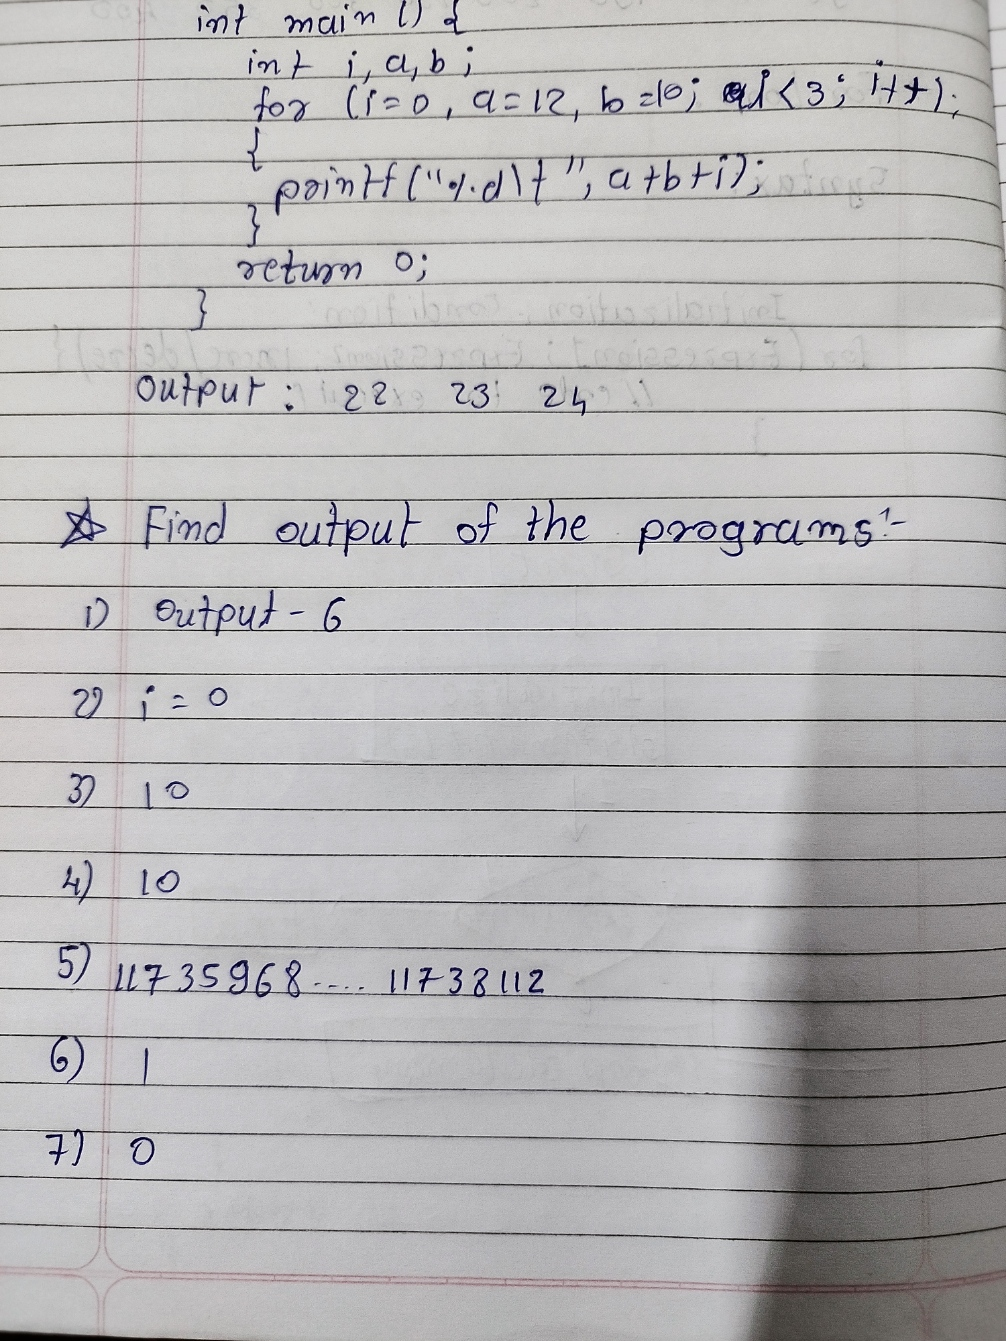 int main () {
int i, a, b ;
for (i=0, a=12, b=10; i<3; i++);
{
printf ("%d\t", a+b+i);
}
return 0;
}
Output : 22 23 24
Find output of the programs:-
1) Output - 6
2) i = 0
3) 10
4) 10
5) 11735968.... 11738112
6) 1
7) 0